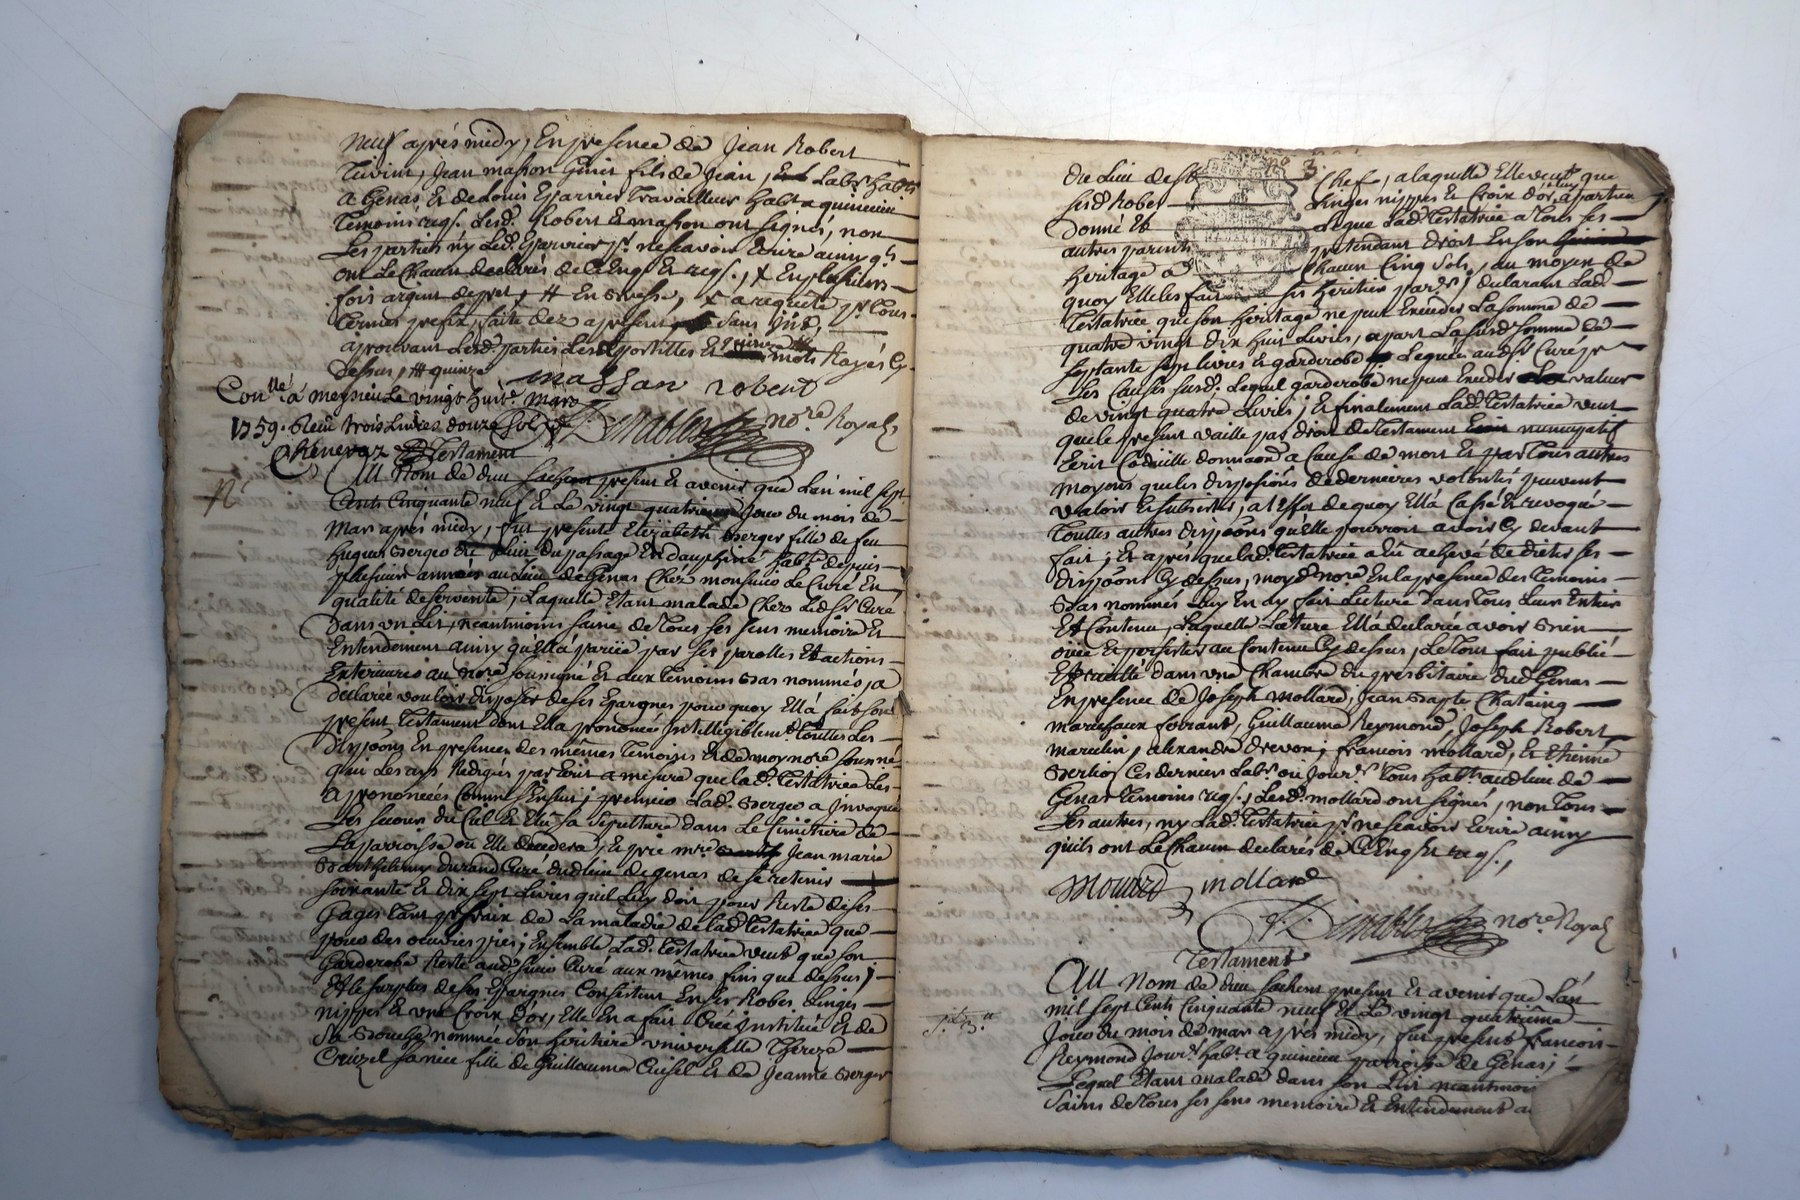 neuf après midy, En presence de Jean Robert
Jean masson fils de Jean, Lab.rs hab.ts
a Genas, Et de Louis Eparvier Travailleur Hab.t a quincieu
Temoins req.s Lesd. Robert Et masson ont signés, non
Les parties ny Led. Eparvier p.r ne scavoir Ecrire ainsy q.ls
ont Le Chacun declarés de Ce Enq.s Et req.s, En plusieurs
fois argent de pret, a requete p.r tous
Termes prefix, faite dez apresent sans
aprouvant Lesd. parties Les apostilles Et quinze mots Rayés Cy
dessus, quinze
massan robert
Con.llé à meysieu Le vingt huit.e mars
1759. Reçu trois Livres douze sols
Chenevaz
no.re Royal
Testament
Au Nom de dieu sachent present Et avenir que L'an mil sept
Cents Cinquante neuf Et Le vingt quatrieme Jour du mois de
Mars après midy, fut presente Elizabeth Berger fille de feu
Hugues Berger du Lieu du passage En dauphiné hab.te depuis
plusieurs années au Lieu de Genas Chez monsieur Le Curé En
qualité de servente, Laquelle Etant malade Chez Led. Sr Curé
dans un Lit, néantmoins saine de Tous ses sens memoire Et
Entendement ainsy qu'Ella parüe par ses parolles Et actions
Exterieures au No.re soussigné Et aux Temoins Bas nommés, a
declarée vouloir disposer de ses Epargnes pour quoy Ell'a fait son
present Testament dont Ell'a prononcée Toutes Les
disp.ons En presence des mêmes Temoins Et de moy No.re soussigné
qui Les ays Redigés par Ecrit a mesure que Lad. Testatrice Les
a prononcées Comme S'Ensuit; premier Lad. Berger a Invoqué
Les secours du Ciel Et Elu sa sepulture dans Le Cimitière de
La parroisse ou Elle decedera; Et prie M.re Jean marie
Barthelemy durand Curé dud. lieu de genas de se retenir
soixante Et dix sept Livres qu'il Luy doit pour Reste de ses
Gages Tant p.r fraix de La maladie de Lad. Testatrice que
pour des oeuvres pies; Ensemble Lad. Testatrice veut que son
Garderobe Reste aud. sieur Curé aux mêmes fins que dessus;
Et le surplus de ses Epargnes Consistent En ses Robes Linges
nippes Et une Croix d'or, Elle En a fait Créé Instituée Et de
sa Bouche nommée son heritiere universelle Therèze
Cruzel sa niece fille de Guillaume Et de Jeanne Berger
N.o 3.
du Lieu de St Chef, a laquelle Elle veut que
sesd. Robes Linges nippes Et Croix d'or Luy apartien
Donné Et Legue Lad. Testatrice a Tous ses
autres parents pretendant droit En son
heritage a Chacun Cinq sols, au moyen de
quoy Elle les fait ses heritiers par.rs, declarant Lad.
Testatrice que son heritage ne peut Exceder La somme de
quatre vingt dix huit Livres, apart La susd. somme de
septante sept livres Et garderobe Leguée aud. Sr Curé p.r
Les Causes susd. Lequel garderobe ne peut Exceder valeur
de vingt quatre Livres; Et finalement Lad. Testatrice veut
que le present vaille par droit de Testament nuncupatif
Ecrit Codicille donnaon a Cause de mort Et par Tous autres
moyens que les disposions de dernieres volontés peuvent
valoir Et subsister, a l'Effet de quoy Ell'a Cassé Et revoqué
Touttes autres disp.ons qu'Elle pourroit avoir Cy devant
fait; Et après que Lad. Testatrice a Eu achevé de dicter ses
disp.ons Cy dessus, moyd. No.re En la presence des Temoins
Bas nommés Luy En ay fait Lecture dans Tout Leur Entier
Et Contenu, Laquelle Lecture Ell'a declarée avoir Bien
ouïe Et persister au Contenu Cy dessus, Le Tout fait publié
Et recitté dans une Chambre du presbitaire dud. Genas
En presence de Joseph mollard, Jean Bap.te Chataing
marechaux ferrants, Guillaume Reymond, Joseph Robert
marelin, alexandre drevon, francois mollard, Et Etienne
Berlioz Ces derniers Lab.rs ou Jour.rs Tous hab.ts aud. lieu de
Genas Temoins req.s, Lesd. mollard ont signés, non Tous
Les autres, ny Lad. Testatrice p.r ne scavoir Ecrire ainsy
qu'ils ont Le Chacun declarés de Ce Enq.s Et req.s,
mollard
no.re Royal
Testament
Au Nom de dieu sachent present Et avenir que L'an
mil sept Cents Cinquante neuf Et Le vingt quatrieme
Jour du mois de mars après midy, fut present francois
Reymond Jour.r hab.t a quincieu parroisse de Genas;
Lequel Etant malade dans son Lit neantmoi
sains de Tous ses sens memoire Et Entendement a